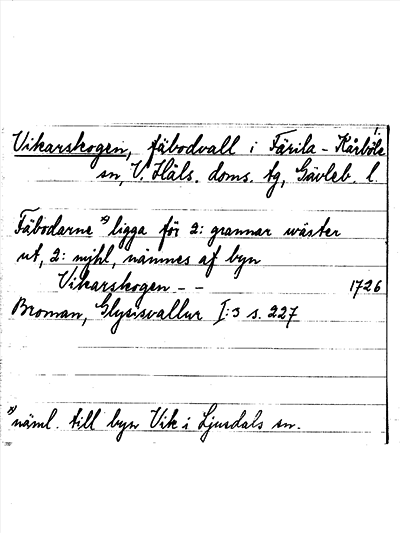 Vikarskogen, fäbodvall i Färila-Kårböle
sn, V. Häls. doms. tg, Gävleb. l.
Fäbodarne x) ligga för 2: grannar wäster
ut, 2: mjhl, nämnes af byn
Vikarskogen - - 1726
Broman, Glysisvallur I:3 s. 227
x) näml. till byn Vik i Ljusdals sn.